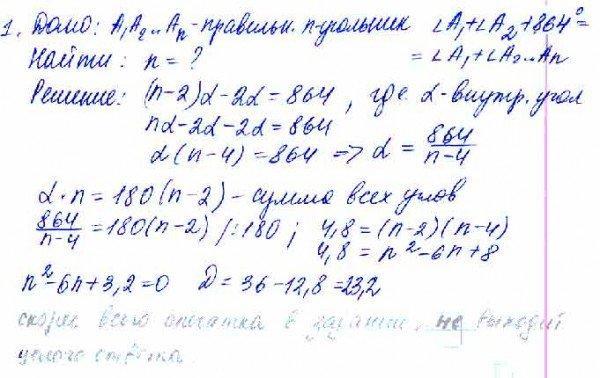 1. Дано: A₁A₂..Aₙ - правильн. n-угольник ∠A₁+∠A₂+864°=
Найти: n = ? = ∠A₁+∠A₂...Aₙ
Решение: (n-2)α-2α=864, где α-внутр. угол
nα-2α-2α=864
α(n-4)=864 => α = 864/(n-4)
α·n=180(n-2) - сумма всех углов
864/(n-4) =180(n-2) /:180; 4,8=(n-2)(n-4)
4,8 = n²-6n+8
n²-6n+3,2=0 D=36-12,8=23,2
скорее всего опечатка в задании, не выходит
целого ответа